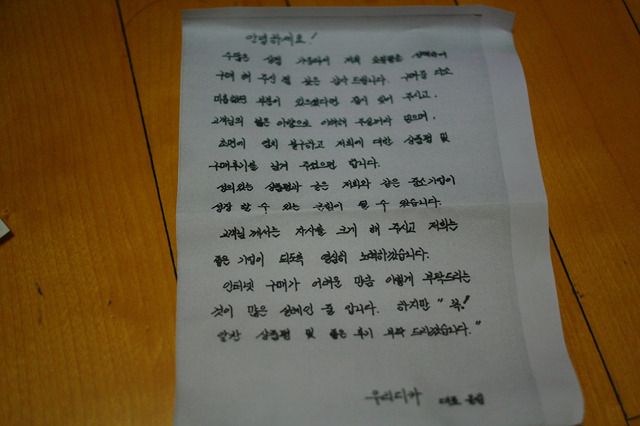 안녕하세요!
수많은 상점 가운데서 저희 쇼핑몰을 선택하여
구매 해 주신 점 깊은 감사 드립니다. 부족한 다소
미흡한 부분이 있으셨다면 잠시 잊어 주시고,
고객님의 넓은 아량으로 이해해 주실거라 믿으며,
초면에 염치 불구하고 저희에 대한 상품평 및
구매후기를 남겨 주셨으면 합니다.
성의있는 상품평과 글은 저희와 같은 중소기업이
성장 할 수 있는 근원이 될 수 있습니다.
고객님 께서는 자사를 크게 해 주시고 저희는
좋은 기업이 되도록 열심히 노력하겠습니다.
인터넷 구매가 어려운 만큼 이렇게 부탁드리는
것이 많은 실례인 줄 압니다. 하지만 "꼭!
알찬 상품평 및 좋은 후기 부탁 드리겠습니다."
우리디카 대표 올림